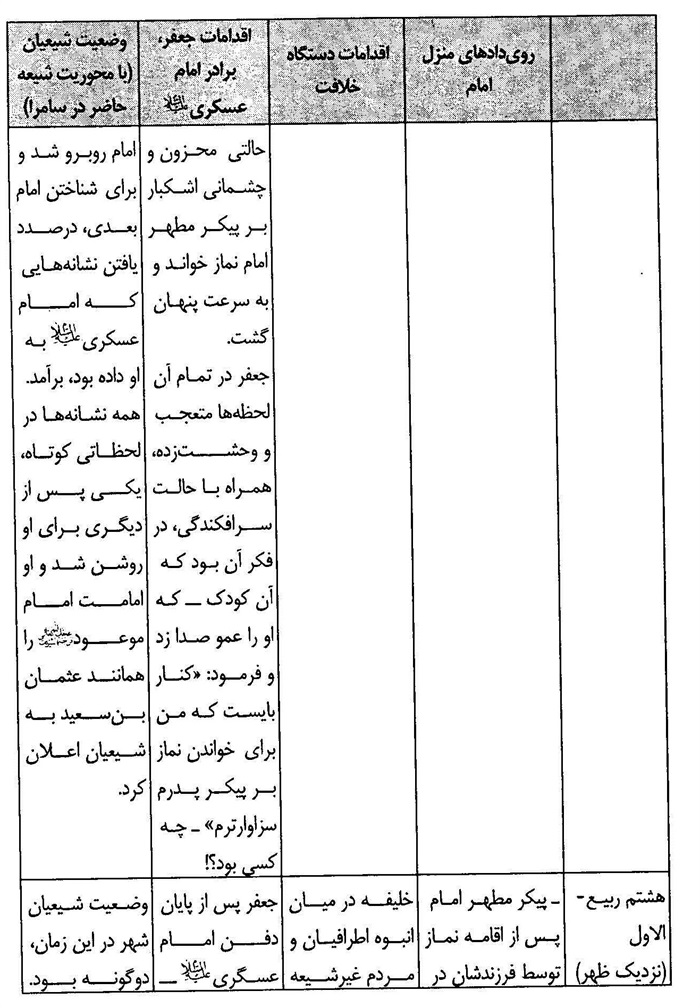 روی‌دادهای منزل
امام
اقدامات دستگاه
خلافت
اقدامات جعفر،
برادر امام
عسکری علیه‌السلام
وضعیت شیعیان
(با محوریت شیعه
حاضر در سامرا)
حالتی محزون و
چشمانی اشکبار
بر پیکر مطهر
امام نماز خواند و
به سرعت پنهان
گشت.
جعفر در تمام آن
لحظه‌ها متعجب
و وحشت‌زده،
همراه با حالت
سرافکندگی، در
فکر آن بود که
آن کودک ـ که
او را عمو صدا زد
و فرمود: «کنار
بایست که من
برای خواندن نماز
بر پیکر پدرم
سزاوارترم» ـ چه
کسی بود؟!
امام روبرو شد و
برای شناختن امام
بعدی، درصدد
یافتن نشانه‌هایی
که امام
عسکری علیه‌السلام به
او داده بود، برآمد.
همه نشانه‌ها در
لحظاتی کوتاه،
یکی پس از
دیگری برای او
روشن شد و او
امامت امام
موعود را
همانند عثمان
بن‌سعید به
شیعیان اعلان
کرد.
هشتم ربیع-
الاول
(نزدیک ظهر)
ـ پیکر مطهر امام
پس از اقامه نماز
توسط فرزندشان در
خلیفه در میان
انبوه اطرافیان و
مردم غیرشیعه
جعفر پس از پایان
دفن امام
عسگری علیه‌السلام ـ
وضعیت شیعیان
شهر در این زمان،
دوگونه بود.